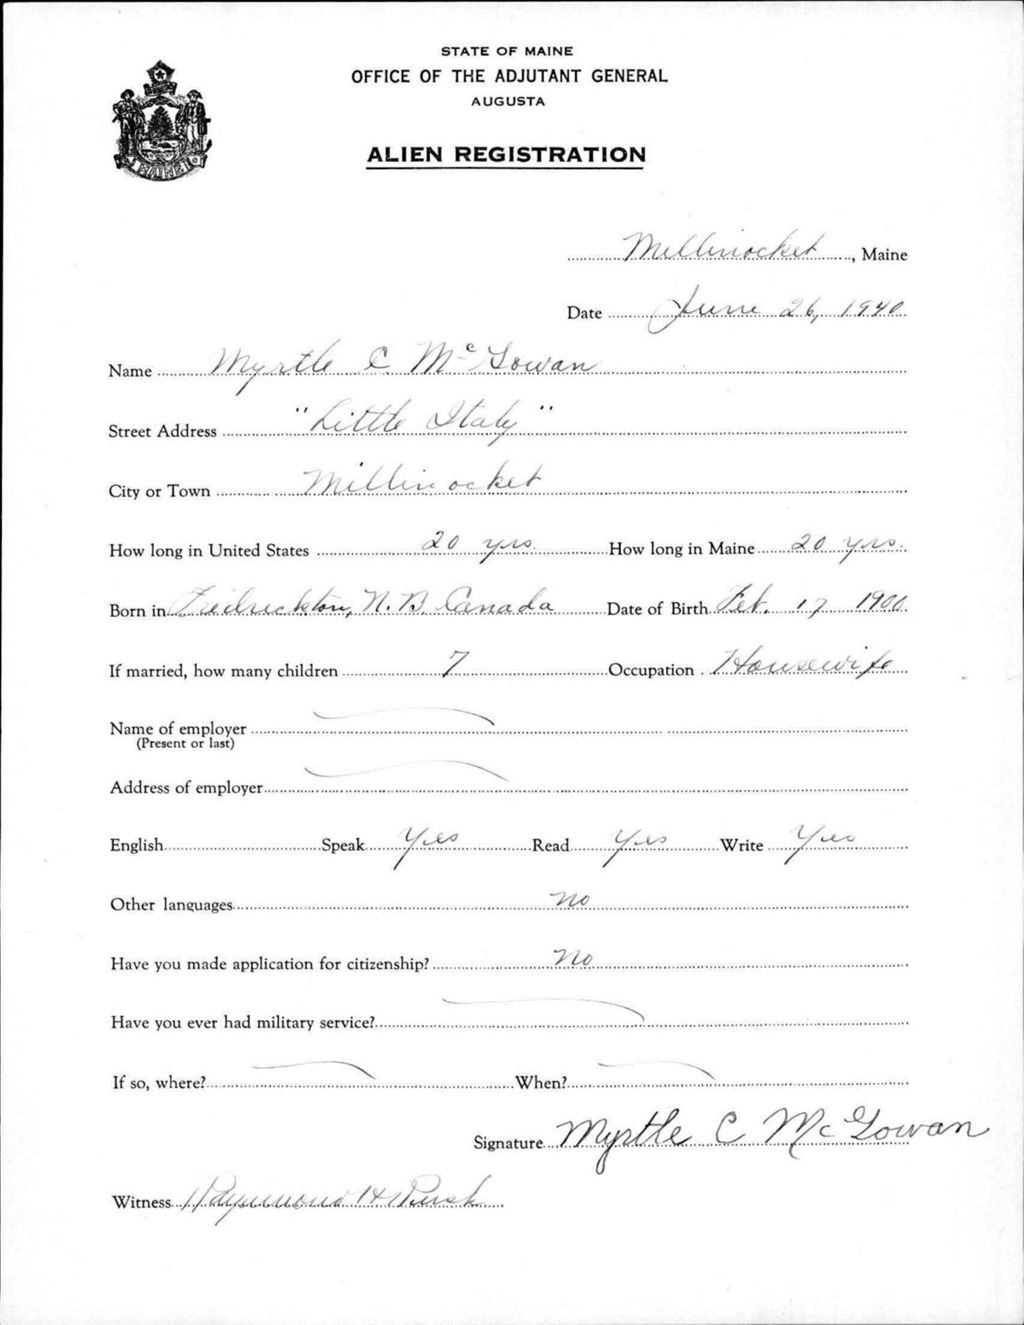 STATE OF MAINE
OFFICE OF THE ADJUTANT GENERAL
AUGUSTA
ALIEN REGISTRATION
Millinocket, Maine
Date June 26, 1940
Name Myrtle C. McGowan
Street Address "Little Italy"
City or Town Millinocket
How long in United States 20 yrs. How long in Maine 20 yrs.
Born in Fredrickton, N.B. Canada Date of Birth Feb. 17 1900
If married, how many children 7 Occupation Housewife
Name of employer
(Present or last)
Address of employer
English Speak Yes Read Yes Write Yes
Other languages No
Have you made application for citizenship? No
Have you ever had military service?
If so, where? When?
Signature Myrtle C McGowan
Witness Raymond H